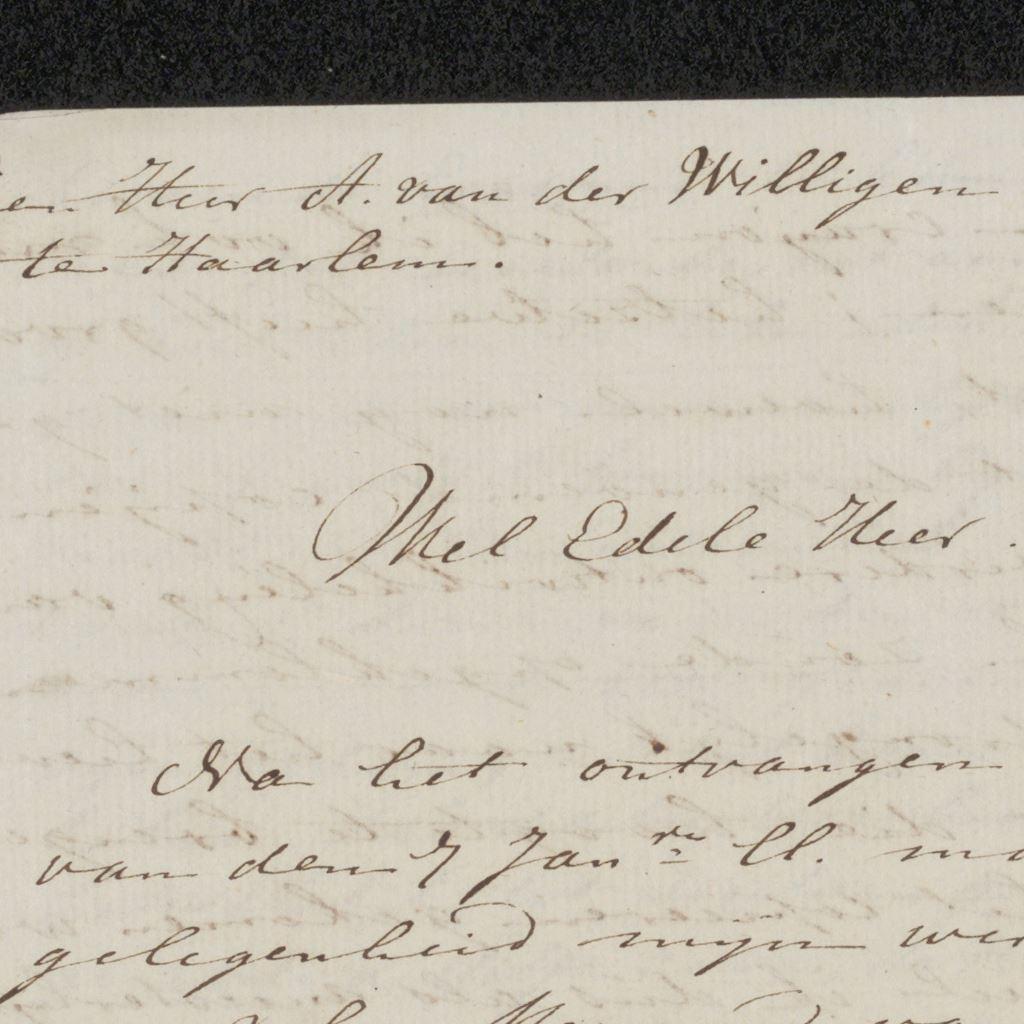 en Heer A. van der Willigen
te Haarlem.
Wel Edele Heer.
Na het ontvangen
van den 7 Jan<sup>re</sup> ll.
gelegenheid mijn